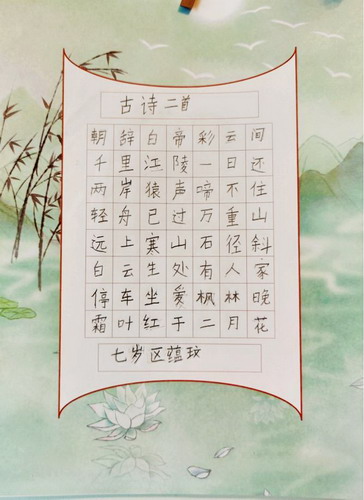 古诗二首
朝辞白帝彩云间
千里江陵一日还
两岸猿声啼不住
轻舟已过万重山
远上寒山石径斜
白云生处有人家
停车坐爱枫林晚
霜叶红于二月花
七岁区蕴玟